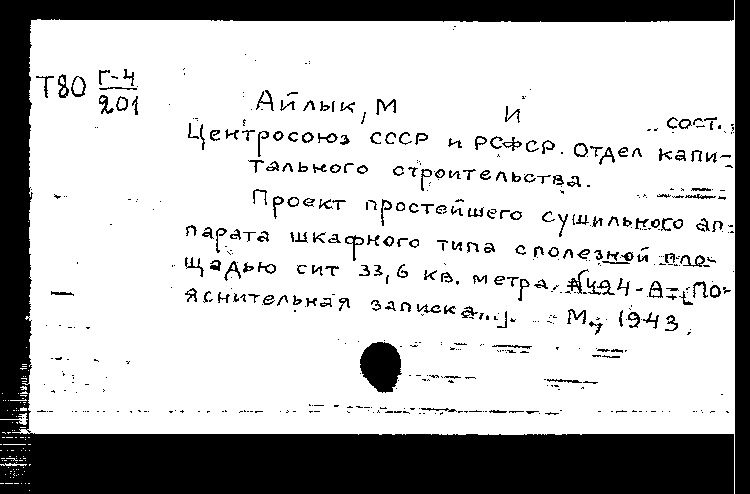 Т80 Г-4
201
Айлык, М И сост.
Центросоюз СССР и РСФСР. Отдел капи-
тального строительства.
Проект простейшего сушильного ап-
парата шкафного типа с полезной пло-
щадью сит 33,6 кв. метра. №494-А. [По-
яснительная записка...]. М., 1943.